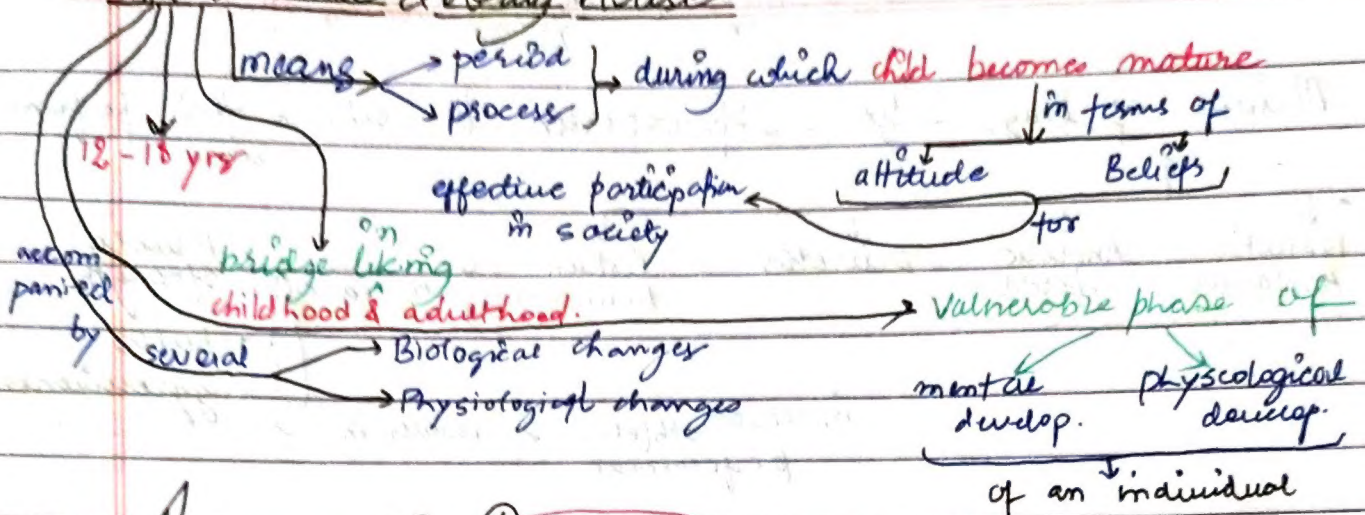 means period
process
during which child becomes mature
in terms of
attitude Beliefs
for
effective participation
in society
12 - 18 yrs
bridge liking
in
childhood & adulthood.
accom
panied
by
several
Biological changes
Physiological changes
Valnerable phase of
mental
develop.
physcological
develop.
of an individual